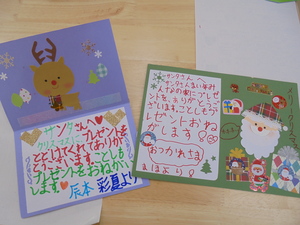 サンタさんへ
クリスマスにプレゼントを
とどけてくれてありがと
うございます。ことしも
プレゼントをおねがい
します。
辰本 彩夏より
サンタさんへ
サンタさんまい年み
んなの家にプレゼ
ントをありがとうご
ざいます。ことしもプ
レゼントおねが
いします!
おつかれさま
まほより!